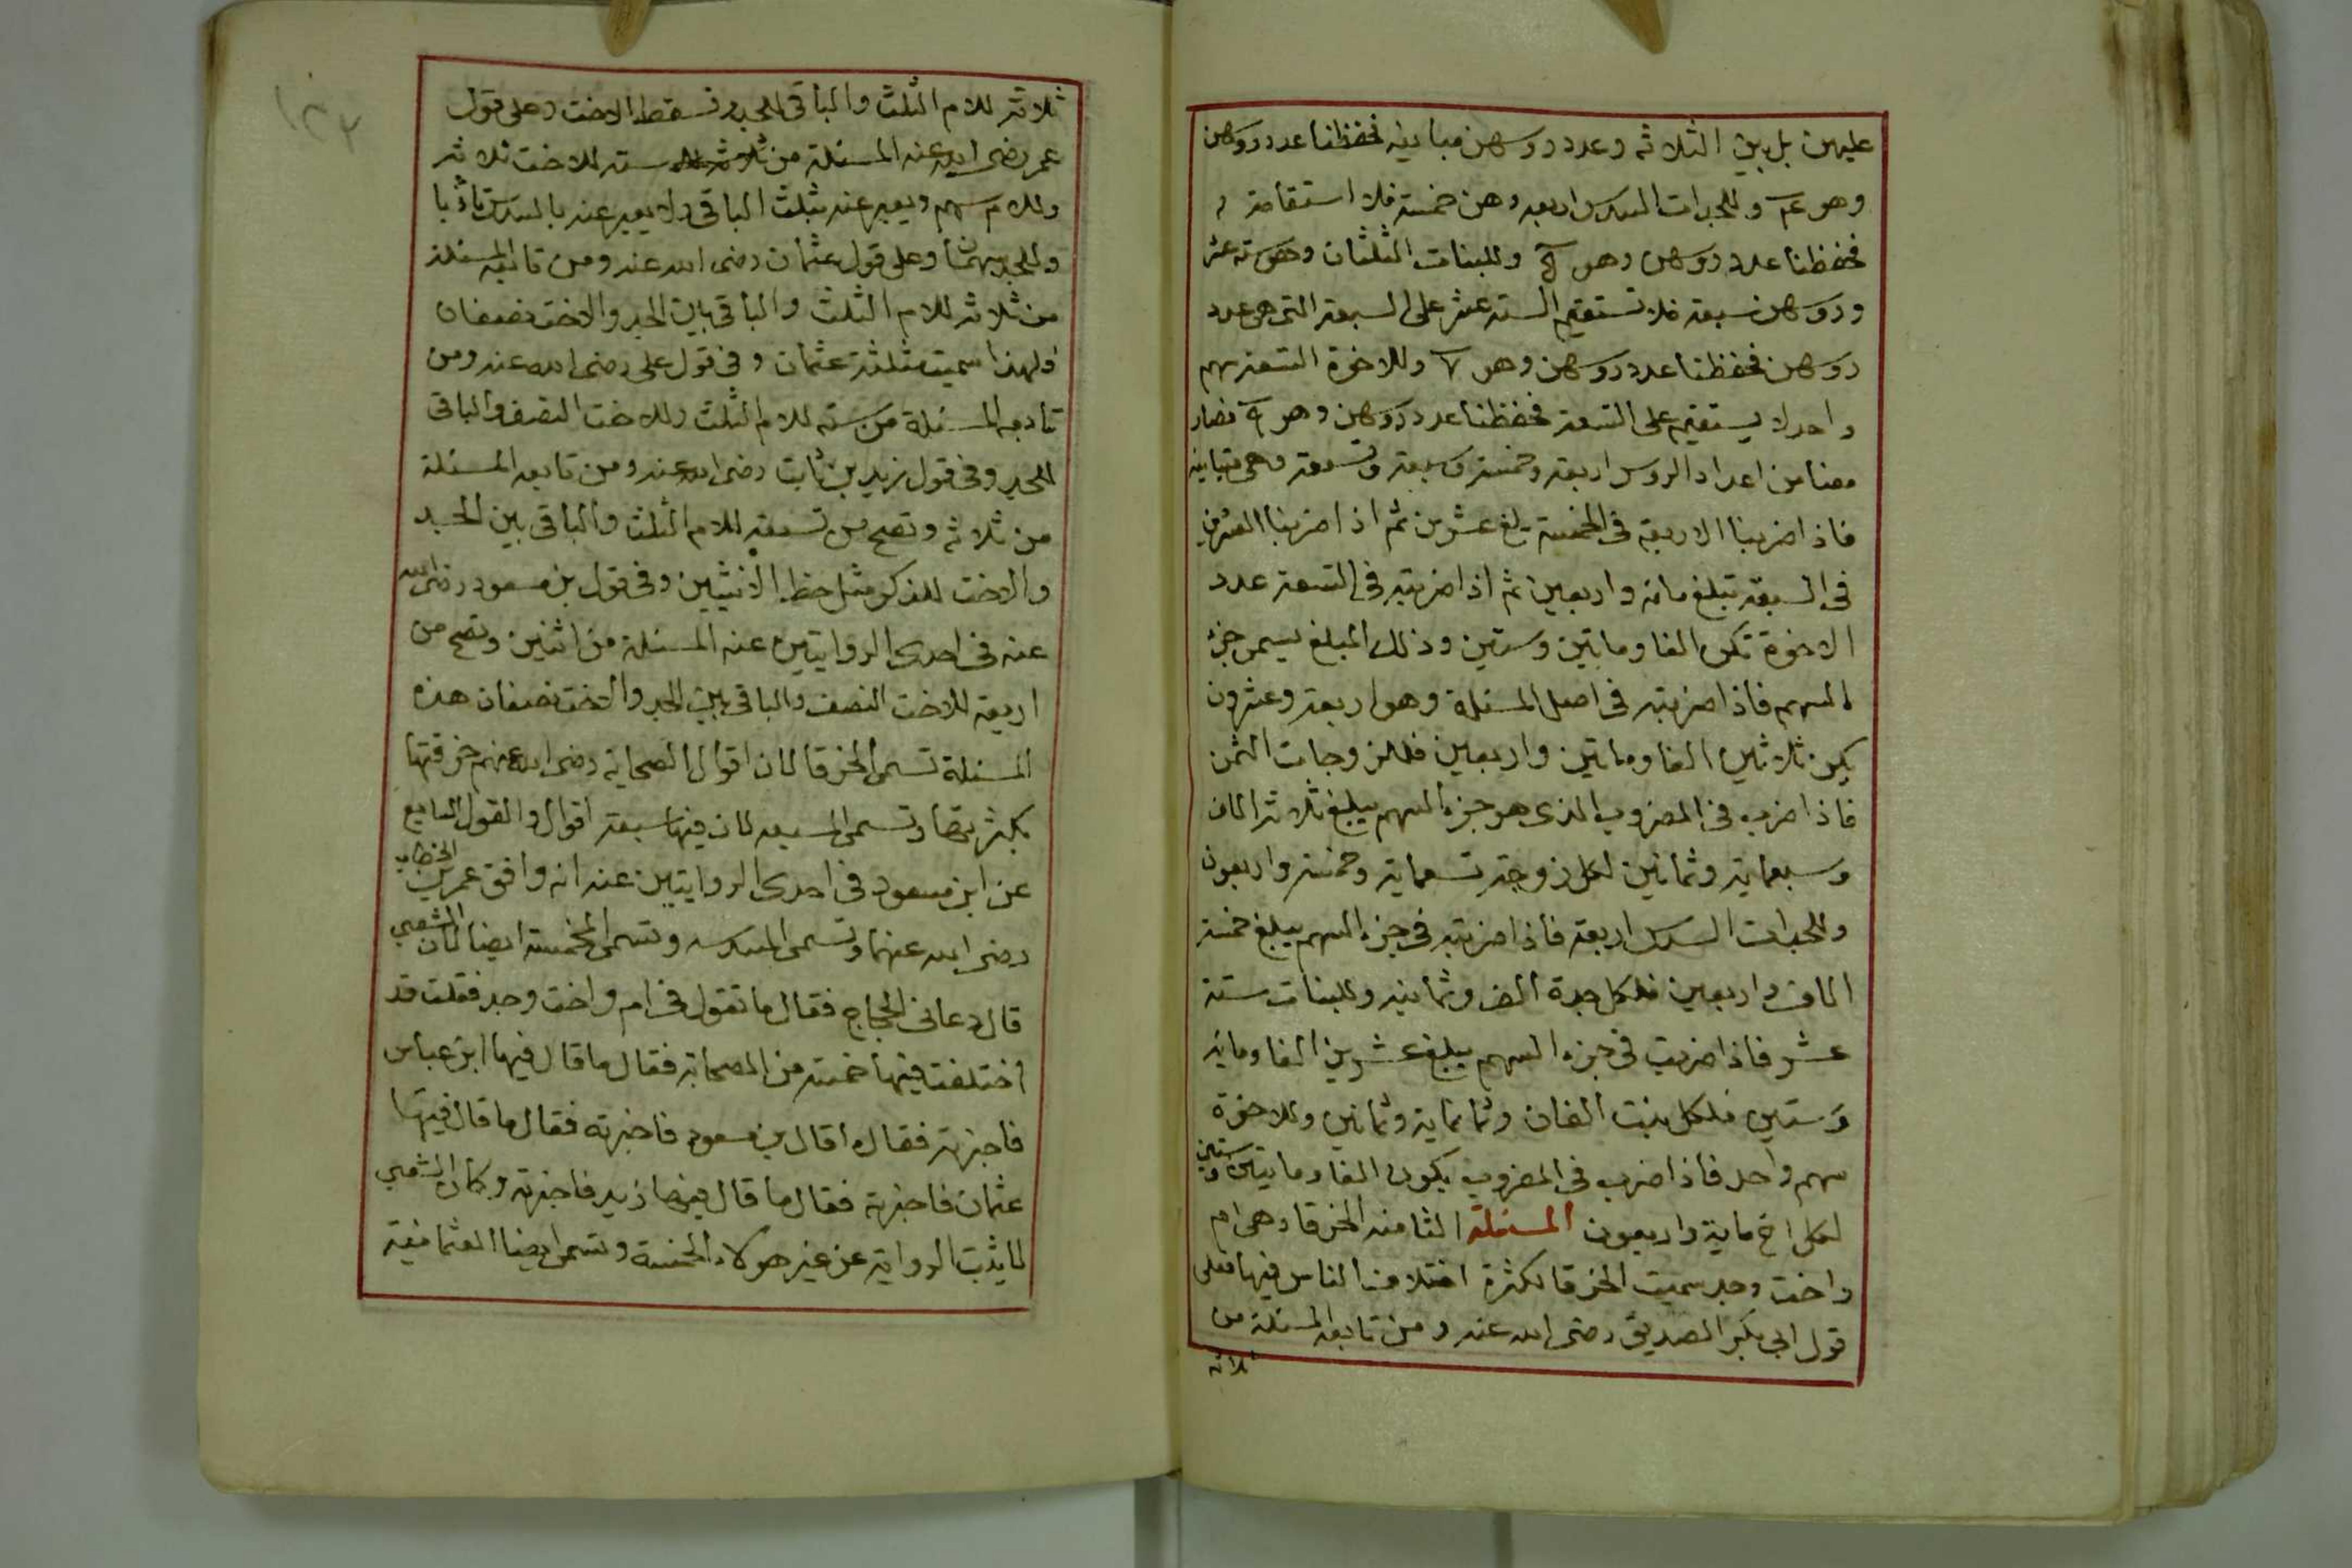 عليهن بل بين الثلاثه وعدد روسهن مباينه فحفظنا عدد روسهن
وهو ع‍ وللجدات السدس اربعه وهن خمسة فلا استقامة
فحفظنا عدد روسهن وهو وللبنات الثلثان وهو سته عشر
وروسهن سبعة فلا تستقيم الستة عشر على السبعة التي هي عدد
روسهن فحفظنا عدد روسهن وهو ٧ وللاخوة التسعة سهم
واحد لا يستقيم على التسعة فحفظنا عدد روسهن وهو ٩ فصار
معنا من اعداد الروس اربعة وخمسة وسبعة وتسعة وهي متباينه
فاذا ضربنا الاربعة في الخمسة يبلغ عشرين ثم اذا ضربنا العشرين
في السبعة تبلغ مائة واربعين ثم اذا ضربته في التسعة عدد
الاخوة تكن الفا وماتين وستين وذلك المبلغ يسمى جزء
السهم فاذا ضربته في اصل المسئلة وهو اربعة وعشرون
يكن ثلاثين الفا وماتين واربعين فللزوجات الثمن
فاذا ضرب في المضروب الذي هو جزء السهم يبلغ ثلاثة الاف
وسبعماية وثمانين لكل زوجة تسعماية وخمسة واربعون
وللجدات السدس اربعة فاذا ضربته في جزء السهم يبلغ خمسة
الاف واربعين فلكل جدة الف وثمانيه وللبنات ستة
عشر فاذا ضربت في جزء السهم يبلغ عشرين الفا ومائة
وستين فلكل بنت الفان وثمانماية وثمانين وللاخوة
سهم واحد فاذا ضرب في المضروب يكون الفا وماتين وستين
لكل اخ ماية واربعون المسئلة الثامنه الخرقا وهي ام
واخت وجد سميت الخرقا لكثرة اختلاف الناس فيها فعلى
قول ابي بكر الصديق رضى الله عنه ومن تابعه المسئلة من
ثلاثه
١٣٢
ثلاثة للام الثلث والباقي للجد وتسقط الاخت وعلى قول
عمر رضى الله عنه المسئلة من ستة للاخت ثلاثة
وللام سهم ويعبر عنه بثلث الباقي ولا يعبر عنه بالسدس تأدبا
وللجد سهمان وعلى قول عثمان رضى الله عنه ومن تابعه المسئلة
من ثلاثة للام الثلث والباقي بين الجد والاخت نصفان
ولهذا سميت مثلثة عثمان وفي قول على رضى الله عنه ومن
تابعه المسئلة من ستة للام الثلث وللاخت النصف والباقي
للجد وفي قول زيد بن ثابت رضى الله عنه ومن تابعه المسئلة
من ثلاثه وتصح من تسعة للام الثلث والباقي بين الجد
والاخت للذكر مثل حظ الانثيين وفي قول بن مسعود رضى الله
عنه في احدى الروايتين عنه المسئلة من اثنين وتصح من
اربعة للاخت النصف والباقي بين الجد والاخت نصفان هذه
المسئلة تسمى الخرقا لان اقوال الصحابة رضى الله عنهم خرقتها
بكثرتها وتسمى المسبعه لان فيها سبعة اقوال والقول السابع
عن ابن مسعود في احدى الروايتين عنه انه وافق عمر بن الخطاب
رضى الله عنهما وتسمى المسدسه وتسمى المخمسة ايضا لان الشعبي
قال دعاني الحجاج فقال ما تقول في ام واخت وجد فقلت قد
اختلفت فيها خمسة من الصحابة فقال ما قال فيها ابن عباس
فاخبرته فقال ما قال بن مسعود فاخبرته فقال ما قال فيها
عثمان فاخبرته فقال ما قال فيها زيد فاخبرته وكان الشعبي
لا يثبت الرواية عن غير هولاء الخمسة وتسمى ايضا العثمانية